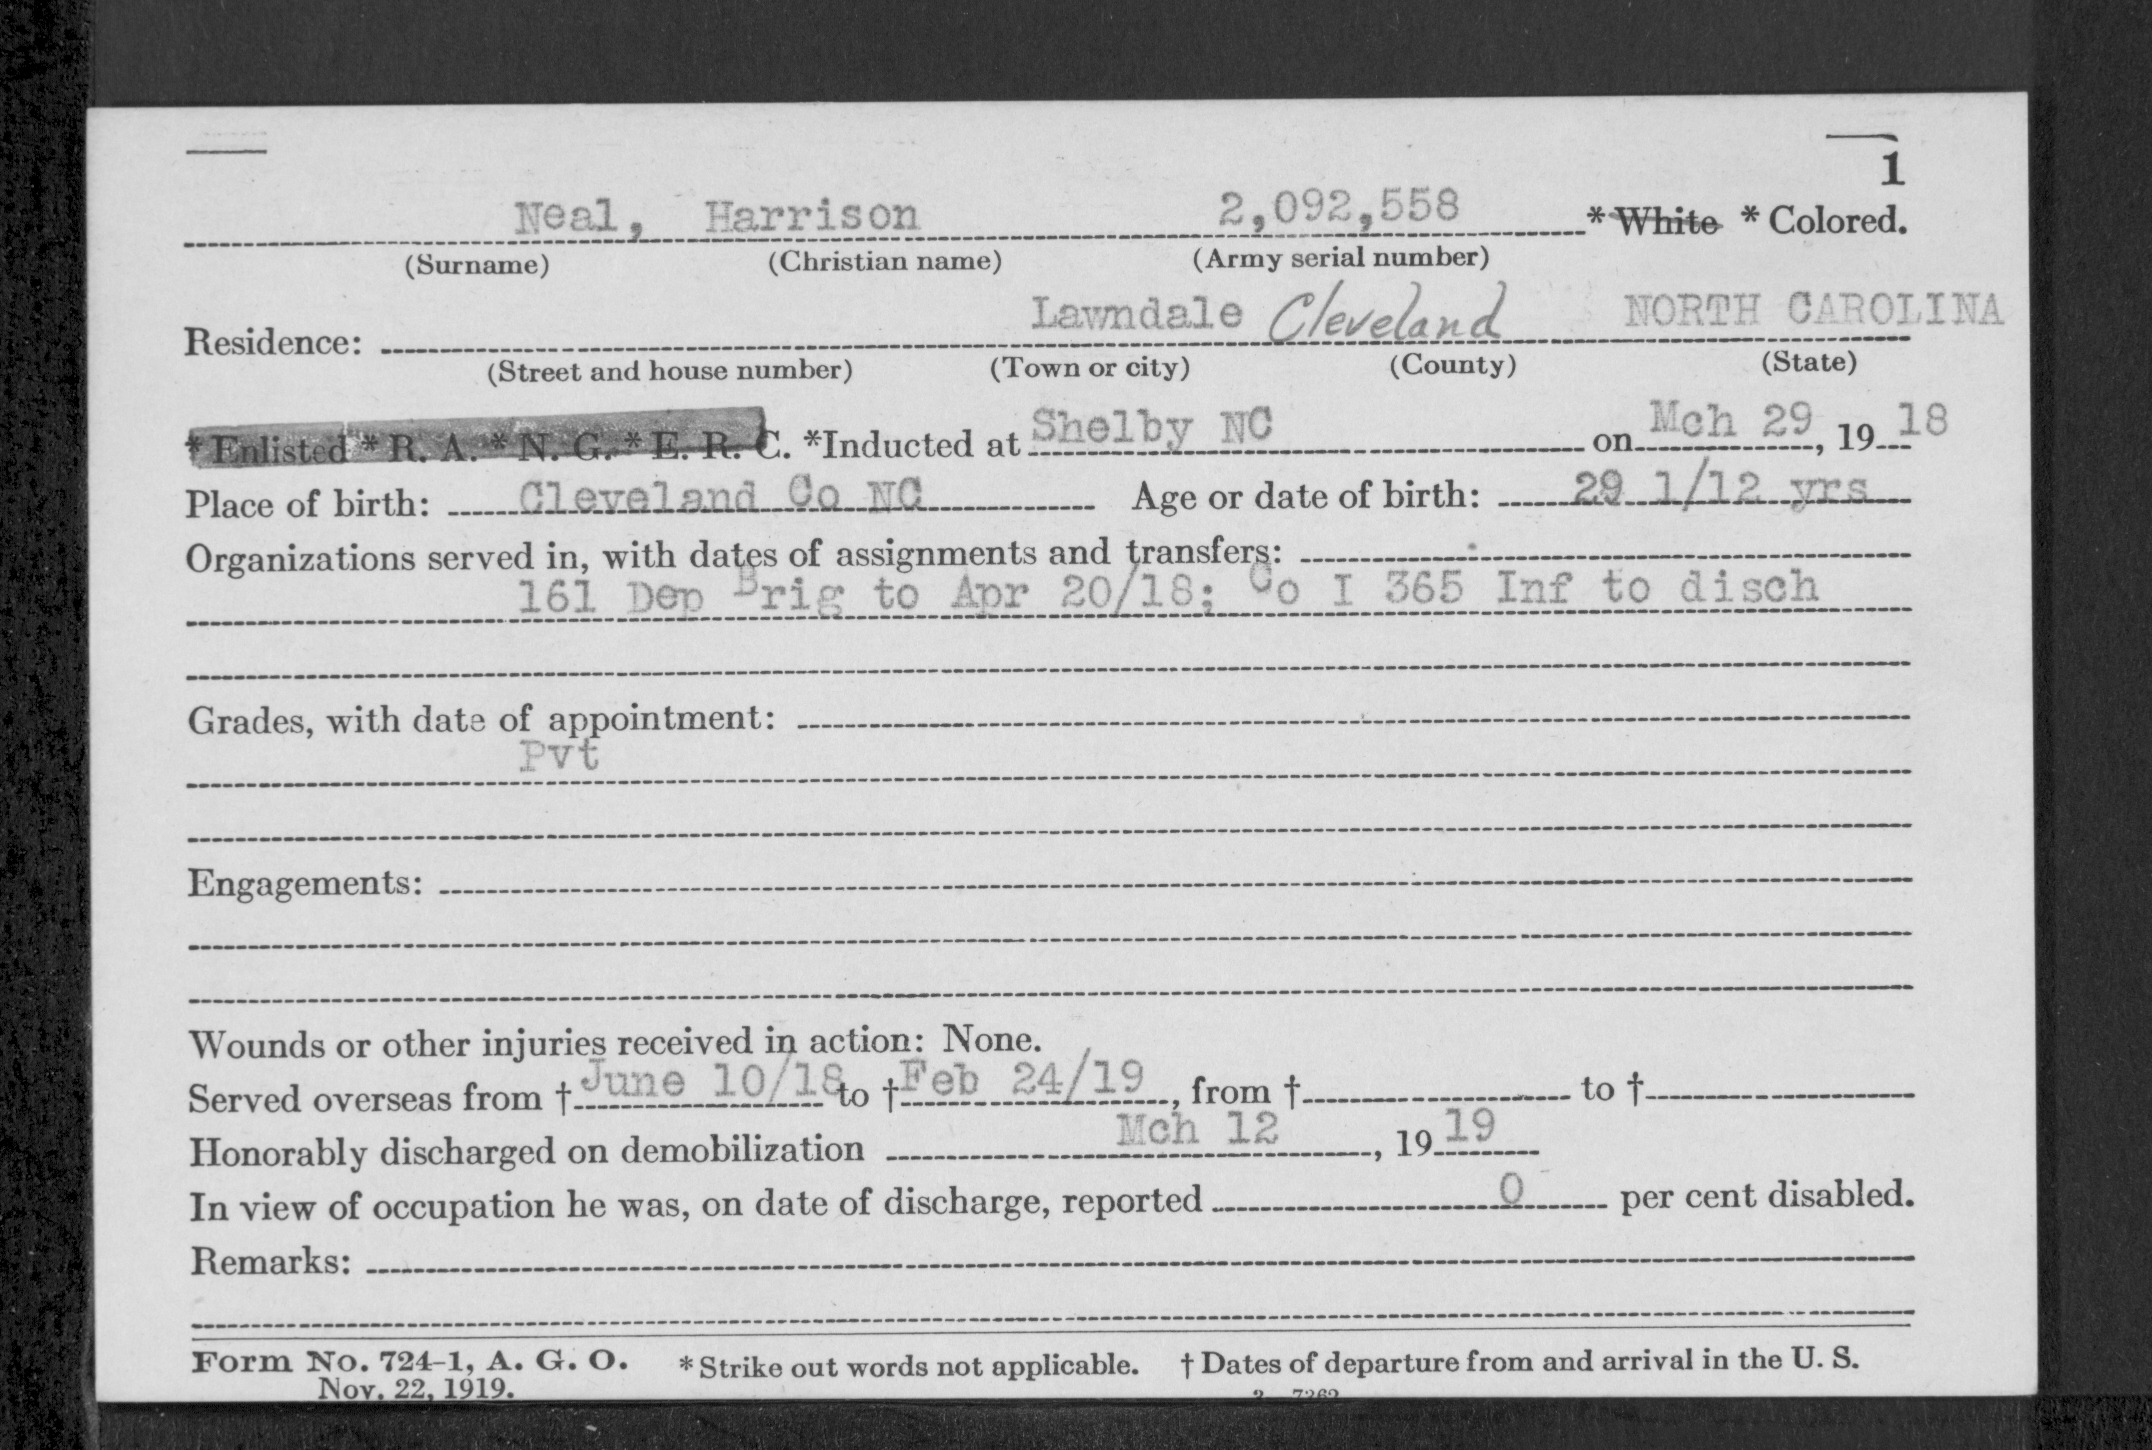 1
Neal, Harrison 2,092,558 * White * Colored.
(Surname) (Christian name) (Army serial number)
Residence: Lawndale Cleveland NORTH CAROLINA
(Street and house number) (Town or city) (County) (State)
* Enlisted * R. A. * N. G. * E. R. C. *Inducted at Shelby NC on Mch 29, 1918
Place of birth: Cleveland Co NC Age or date of birth: 29 1/12 yrs
Organizations served in, with dates of assignments and transfers:
161 Dep Brig to Apr 20/18; Co I 365 Inf to disch
Grades, with date of appointment:
Pvt
Engagements:
Wounds or other injuries received in action: None.
Served overseas from † June 10/18 to † Feb 24/19, from † to †
Honorably discharged on demobilization Mch 12, 1919
In view of occupation he was, on date of discharge, reported 0 per cent disabled.
Remarks:
Form No. 724-1, A. G. O. * Strike out words not applicable. † Dates of departure from and arrival in the U. S.
Nov. 22, 1919.